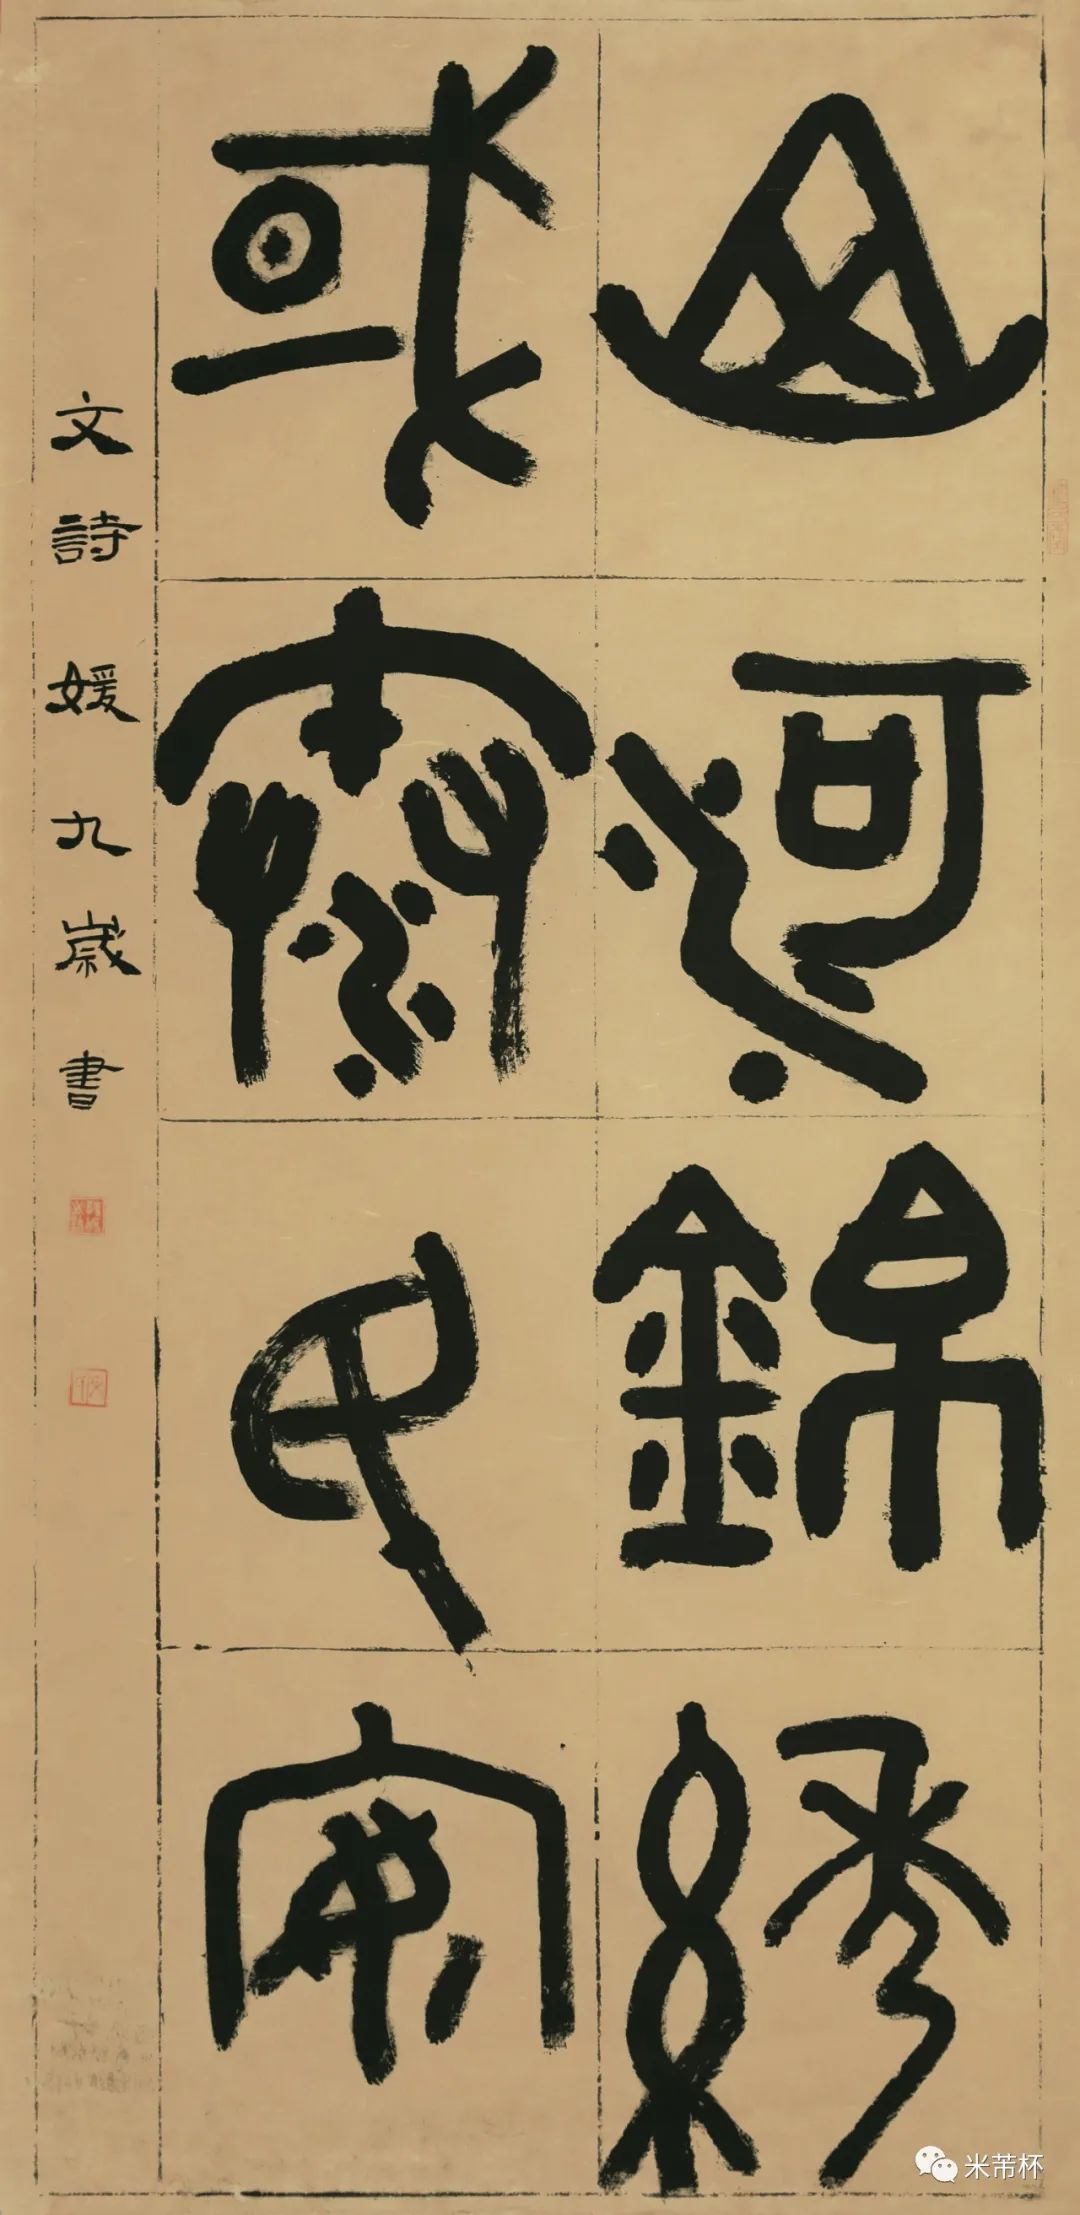 山河錦繡
國泰民安
文詩媛九歲書
米芾杯